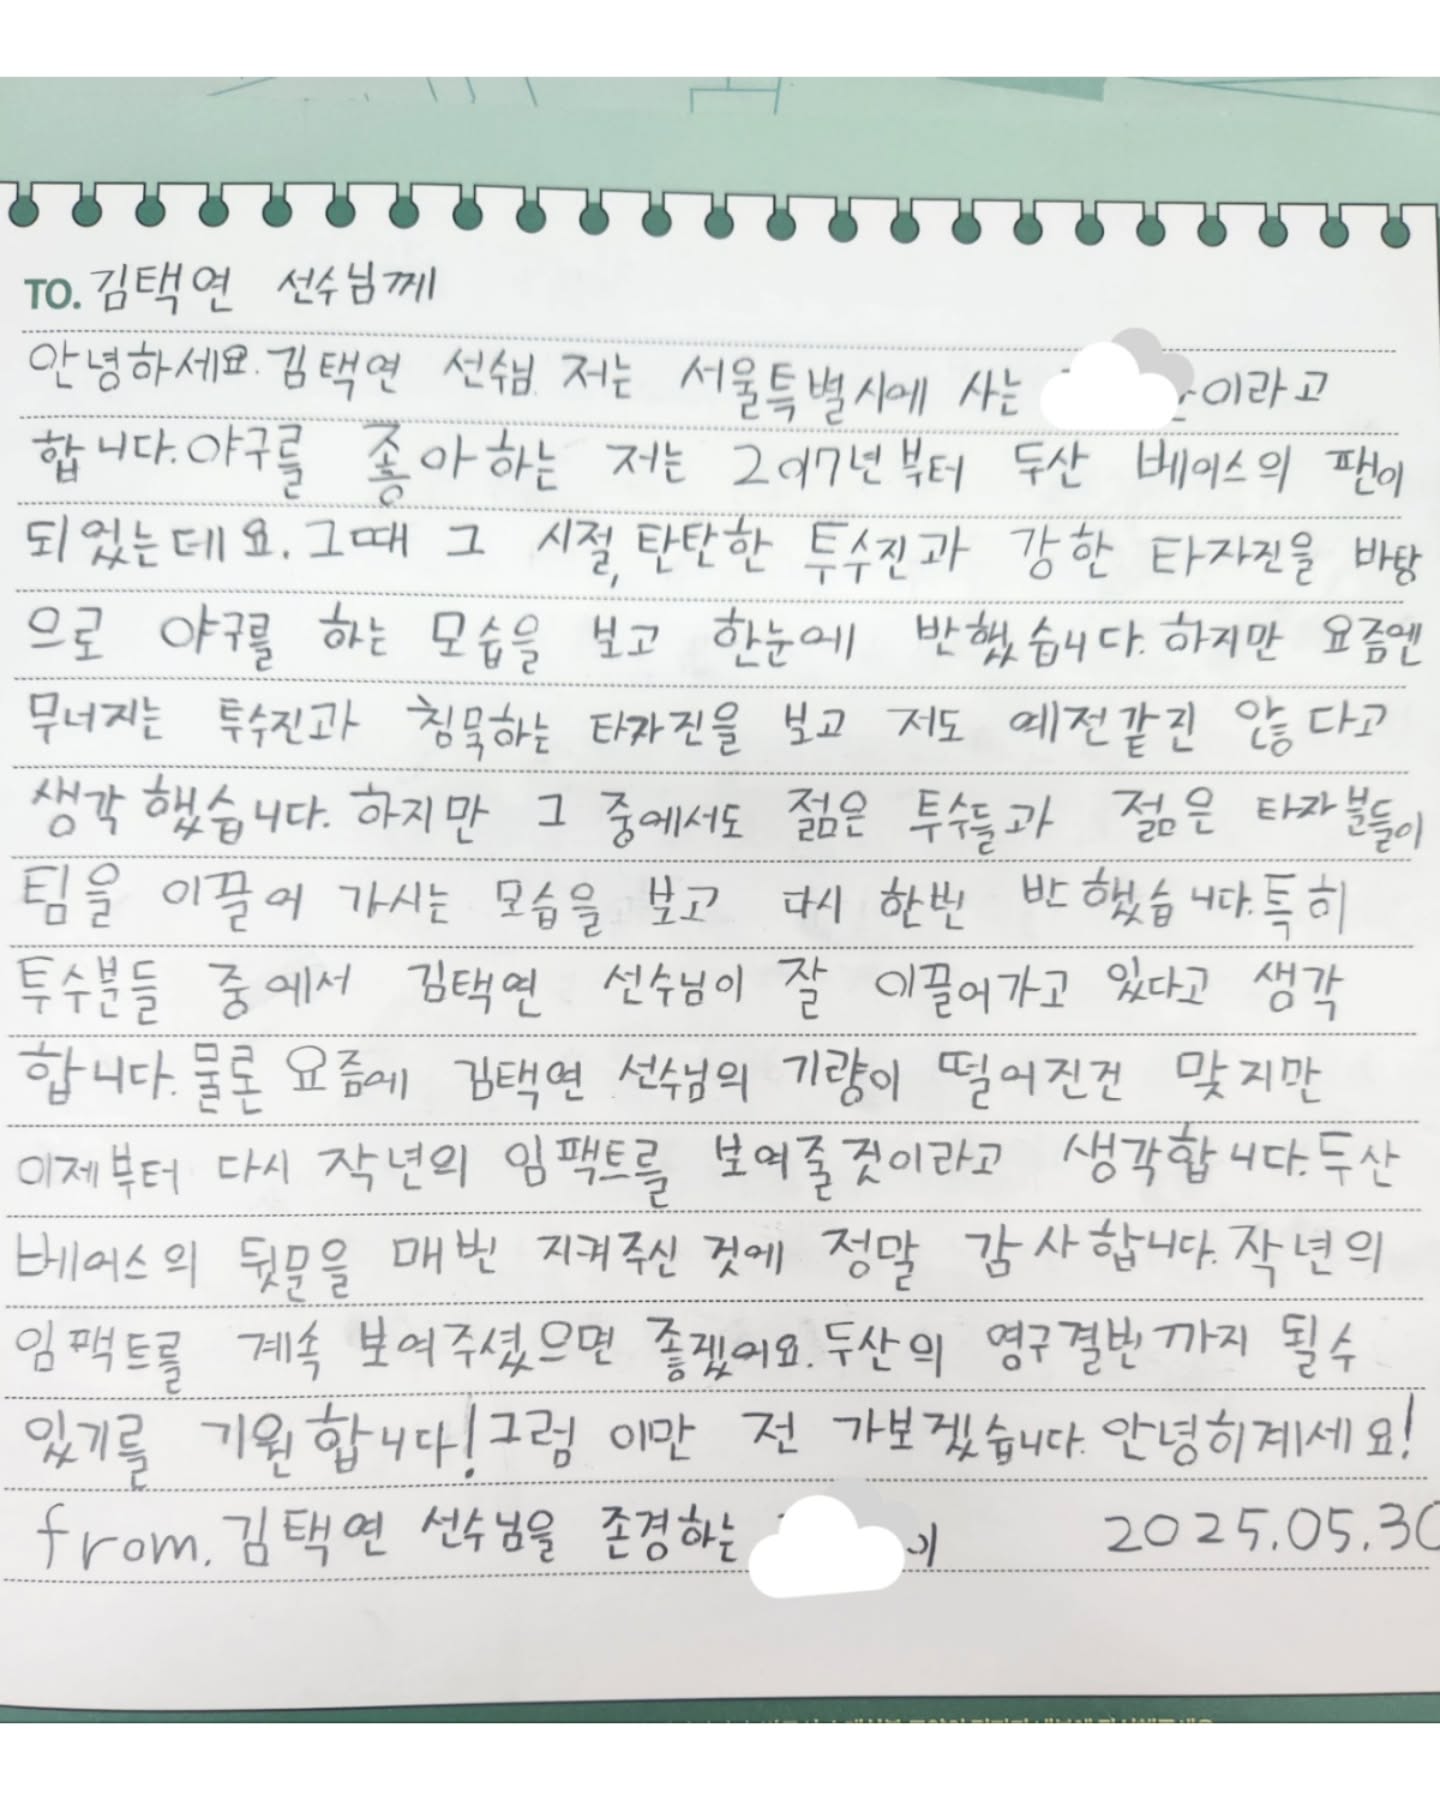 TO. 김택연 선수님께
안녕하세요. 김택연 선수님. 저는 서울특별시에 사는 이라고
합니다. 야구를 좋아하는 저는 2017년부터 두산 베이스의 팬이
되었는데요. 그때 그 시절, 탄탄한 투수진과 강한 타자진을 바탕
으로 야구를 하는 모습을 보고 한눈에 반했습니다. 하지만 요즘엔
무너지는 투수진과 침묵하는 타자진을 보고 저도 예전같진 않다고
생각했습니다. 하지만 그 중에서도 젊은 투수들과 젊은 타자분들이
팀을 이끌어 가시는 모습을 보고 다시 한번 반했습니다. 특히
투수분들 중에서 김택연 선수님이 잘 이끌어가고 있다고 생각
합니다. 물론 요즘에 김택연 선수님의 기량이 떨어진건 맞지만
이제부터 다시 작년의 임팩트를 보여줄것이라고 생각합니다. 두산
베어스의 뒷문을 매번 지켜주신 것에 정말 감사합니다. 작년의
임팩트를 계속 보여주셨으면 좋겠어요. 두산의 영구결번까지 될수
있기를 기원합니다! 그럼 이만 전 가보겠습니다. 안녕히계세요!
from. 김택연 선수님을 존경하는 2025.05.30